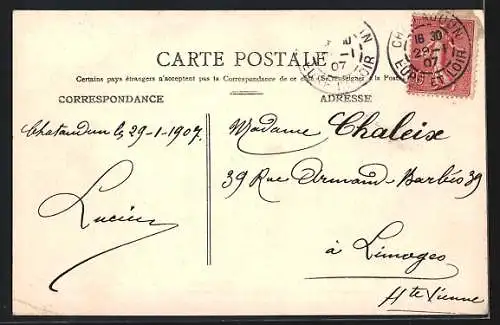 CARTE POSTALE
Certains pays étrangers n'acceptent pas la Correspondance de ce côté (Se renseigner à la Poste)
CORRESPONDANCE
ADRESSE
CHATEAUDUN
18 30
29 -1
07
EURE ET LOIR
07
Chateaudun le 29-1-1907.
Lucien
Madame Chaleix
39 Rue Armand-Barbès 39
à Limoges
Hte Vienne